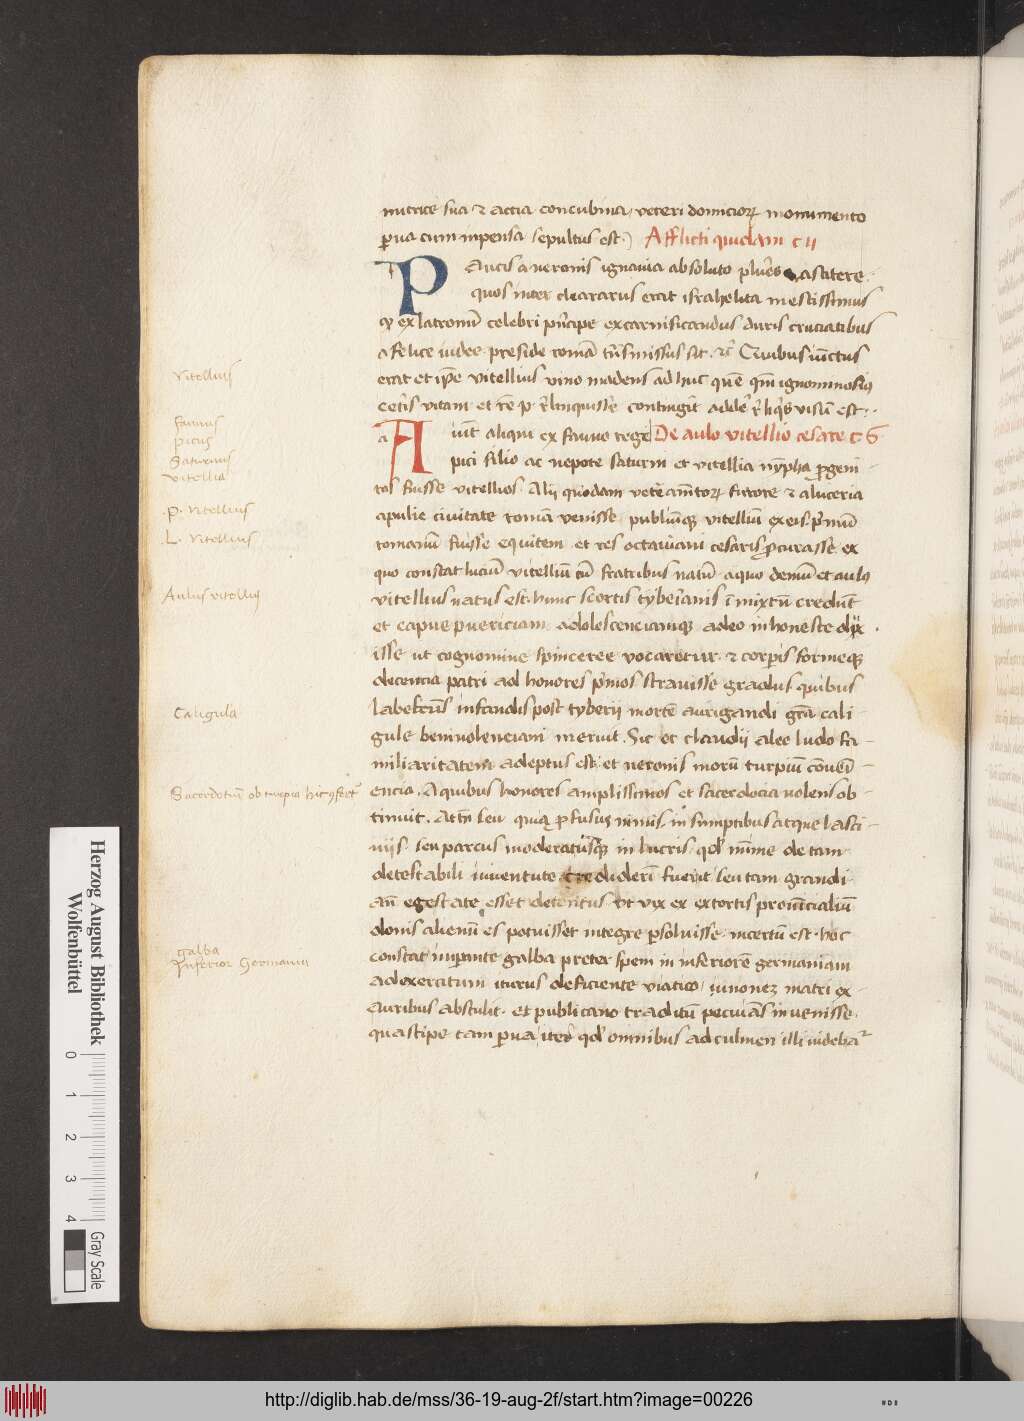 nutrice sua ⁊ actia concubina, veteri domicioꝝ monumento
ꝑua cum inpensa sepultus est. Afflicti quidam c ii
PAucis a neronis ignavia absoluto plures astitere.
quos inter eleazarus erat israhelita mestissimus
ex latronū celebri pn̄cipe excarnificandus duris cruciatibus
a felice iudee preside romā trāsmissus sit. Quibus iūctus
erat et ip̄e vitellius vino madens ad huc quē qm̄ ignominosiꝰ
ceteris vitam et
AIūt aliqui ex fauno rege De aulo vitellio cesare c 6
pici filio ac nepote saturni et vitellia nympha ꝓgeni
tos fuisse vitellios. Alii quidam
apulie civitate romā venisse. publiūqꝫ vitelliū ex eis pͥmū
romanū fuisse equitem et res octaviani cesaris ꝓcurasse. ex
quo constat luciū vitelliū cū fratribus natū. a quo demū et aulꝰ
vitellius natus est. hunc scortis tyberianis ī mixtū credunt
et capue puericiam adolescenciamqꝫ adeo inhoneste dux
isse ut cognomine spinceree vocaretur. ⁊ corꝑis formeqꝫ
decencia patri ad honores pͥmos stravisse gradus. quibus
labefactus infandis post tyberii mortē aurigandi gr̄a cali
gule benivolenciam meruit. Sic et claudii alee ludo fa
miliaritatem adeptus est. et neronis morū turpiū cōveni
encia. A quibus honores amplissimos et sacerdocia volens ob
tinuit. Attn̄ seu qꝫ profusus nimis in sumptibus atque lasci
viis. seu parcus moderatusqꝫ in lucris. qd̄ mīme de tam
detestabili iuventute crediderī fuerit. seu tam grandi
an̄ egestate esset detentus ut vix ex extortis provīcialiū
donis alienū es potuisset integre ꝑsolvisse. incertū est. hoc
constat imperante galba preter spem in inferiorē germaniam
ad exercitum iturus deficiente viatico, iunonem matri ex
auribus abstulit. et publicano traditū pecunias invenisse.
qua stipe tam ꝑua iter qd̄ omnibus ad culmen illi videbatͬ
Vitellius
faunus
picus
Saturnus
vitellia
P. Vitellius
L. Vitellius
Aulus vitellius
Caligula
Sacerdotiū ob turpia
galba
Inferior Germania
Herzog August Bibliothek
Wolfenbüttel
0 1 2 3 4
Gray Scale
http://diglib.hab.de/mss/36-19-aug-2f/start.htm?image=00226